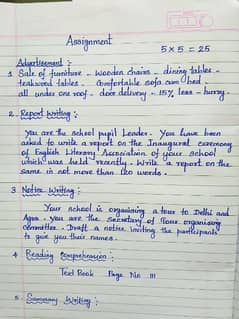 Assignment
5 x 5 = 25
Advertisement :
1 Sale of furniture - Wooden chairs - dining tables -
teakwood tables - Comfortable sofa cum bed -
all under one roof - door delivery - 15% less - hurry.
2. Report Writing :
You are the school pupil Leader. You have been
asked to write a report on the Inaugural ceremony
of English Literary Association of your school
which was held recently. Write a report on the
same in not more than 120 words.
3 Notice Writing :
Your school is organising a tour to Delhi and
Agra. You are the Secretary of Tour organising
Committee. Draft a notice inviting the participants
to give you their names.
4 Reading Comprehension :
Text Book Page No 111
5 Summary Writing :